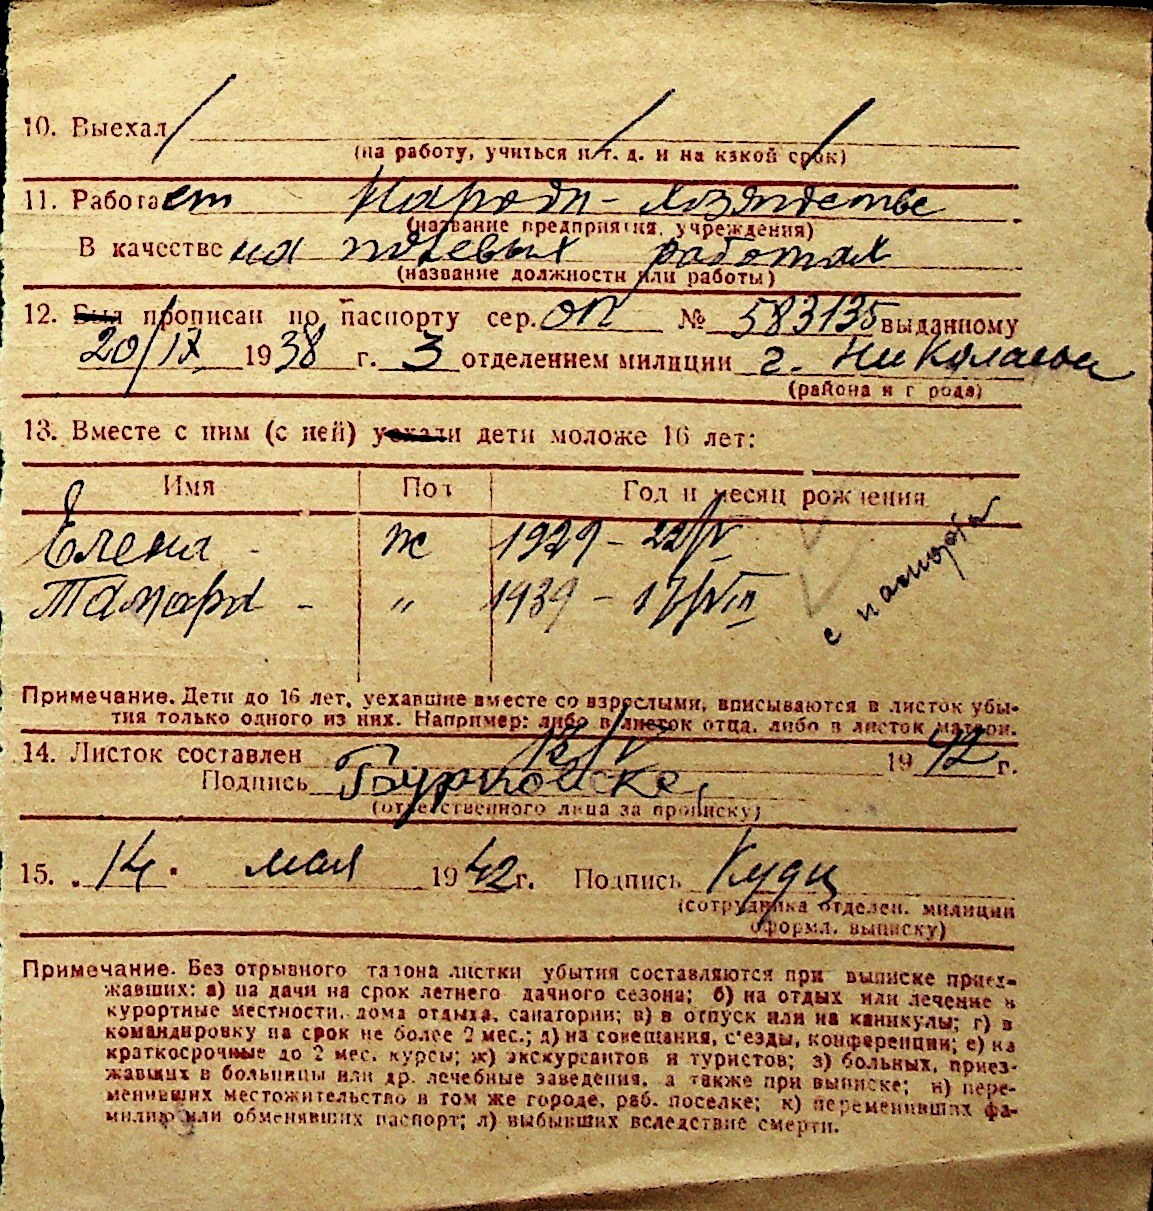 10. Выехал
(на работу, учиться и т. д. и на какой срок)
11. Работает Народн- хозяйстве
(название предприятия, учреждения)
В качестве на полевых работах
(название должности или работы)
12. Был прописан по паспорту сер. ОП № 583135 выданному
20/IX 1938 г. 3 отделением милиции г. Николаева
(района и города)
13. Вместе с ним (с ней) уехали дети моложе 16 лет:
Имя Пол Год и месяц рождения
Елена - ж 1929 - 22/IV
Тамара - " 1939 - 17/VIII
с паспорта
Примечание. Дети до 16 лет, уехавшие вместе со взрослыми, вписываются в листок убы-
тия только одного из них. Например: либо в листок отца, либо в листок матери.
14. Листок составлен 13/V 1942 г.
Подпись
(ответственного лица за прописку)
15. 14. мая 1942 г. Подпись
(сотрудника отделен. милиции
оформл. выписку)
Примечание. Без отрывного талона листки убытия составляются при выписке приез-
жавших: а) на дачи на срок летнего дачного сезона; б) на отдых или лечение в
курортные местности, дома отдыха, санатории; в) в отпуск или на каникулы; г) в
командировку на срок не более 2 мес.; д) на совещания, с'езды, конференции; е) на
краткосрочные до 2 мес. курсы; ж) экскурсантов и туристов; з) больных, приез-
жавших в больницы или др. лечебные заведения, а также при выписке; и) пере-
менивших местожительство в том же городе, раб. поселке; к) переменивших фа-
милию или обменявших паспорт; л) выбывших вследствие смерти.